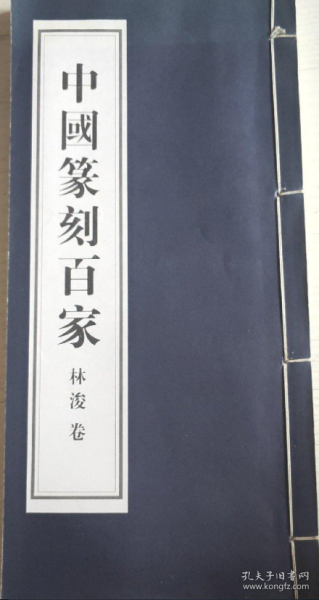 中國篆刻百家
林浚卷
孔夫子旧书网
www.kongfz.com